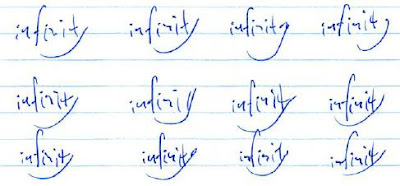 infinity infinity infinity infinity
infinity infinity infinity infinity
infinity infinity infinity infinity